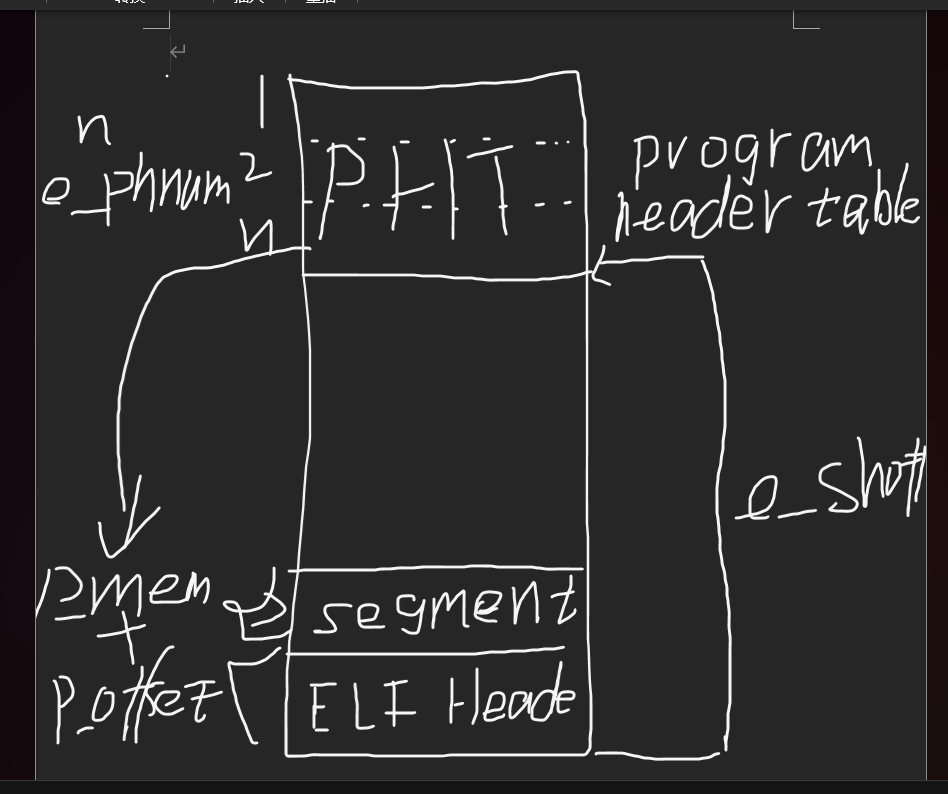 n
1
e_phnum
2
n
PHT
program
header table
e_shoff
pmem
+
p_offset
segment
ELF Heade